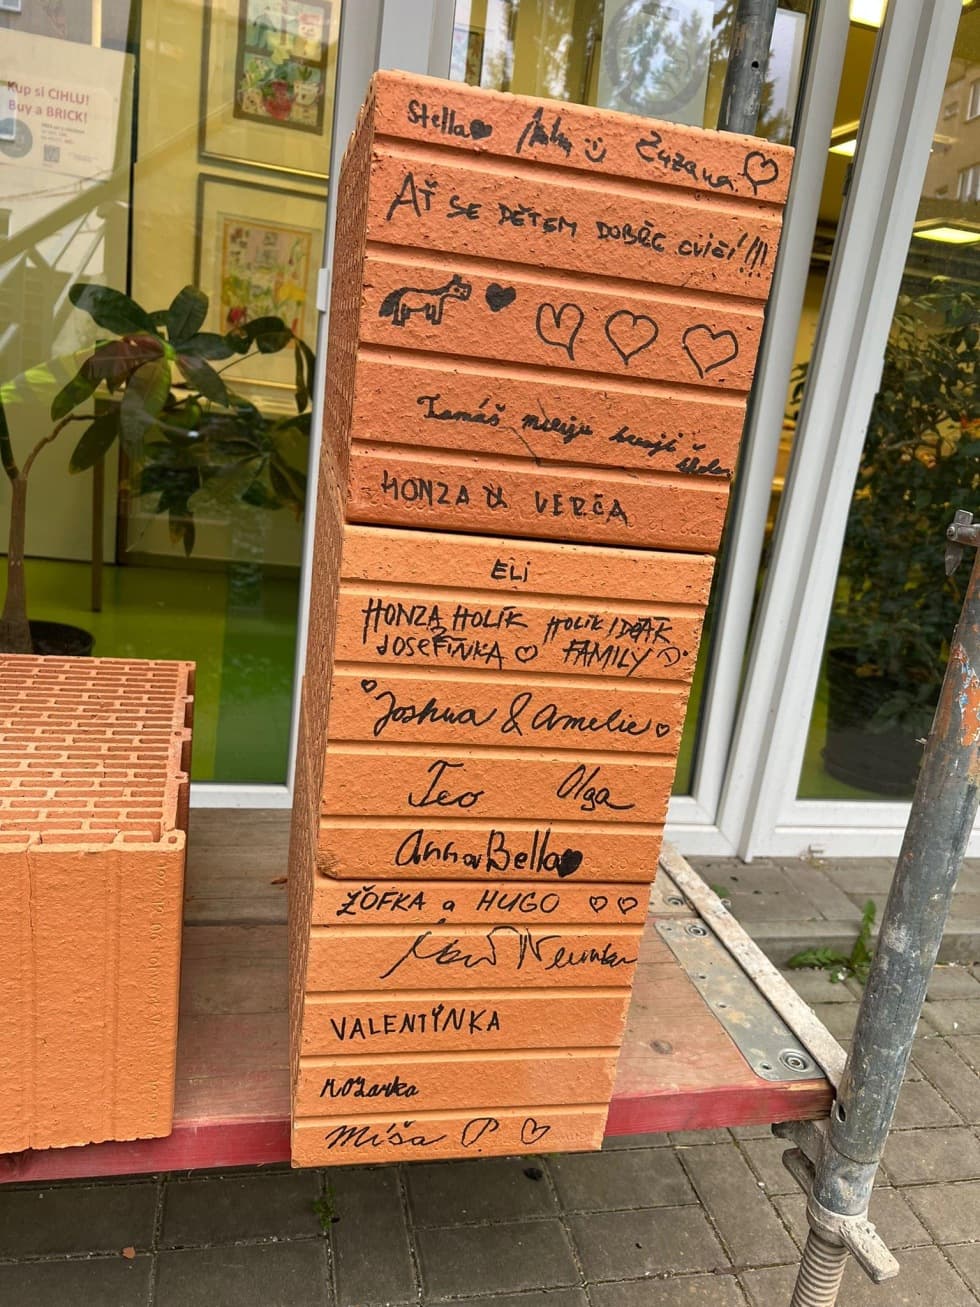 Kup si CIHLU!
Buy a BRICK!
Stella Zuzana
AŤ SE DĚTEM DOBŘE CVIČÍ!!!
Tomáš miluju
HONZA & VERČA
ELi
HONZA HOLÍK HOLIK IDEAK
JOSEFÍNKA FAMILY
Joshua & Amelie
Teo Olga
AnnaBella
ŽOFKA a HUGO
VALENTÝNKA
ROZárka
Míša P